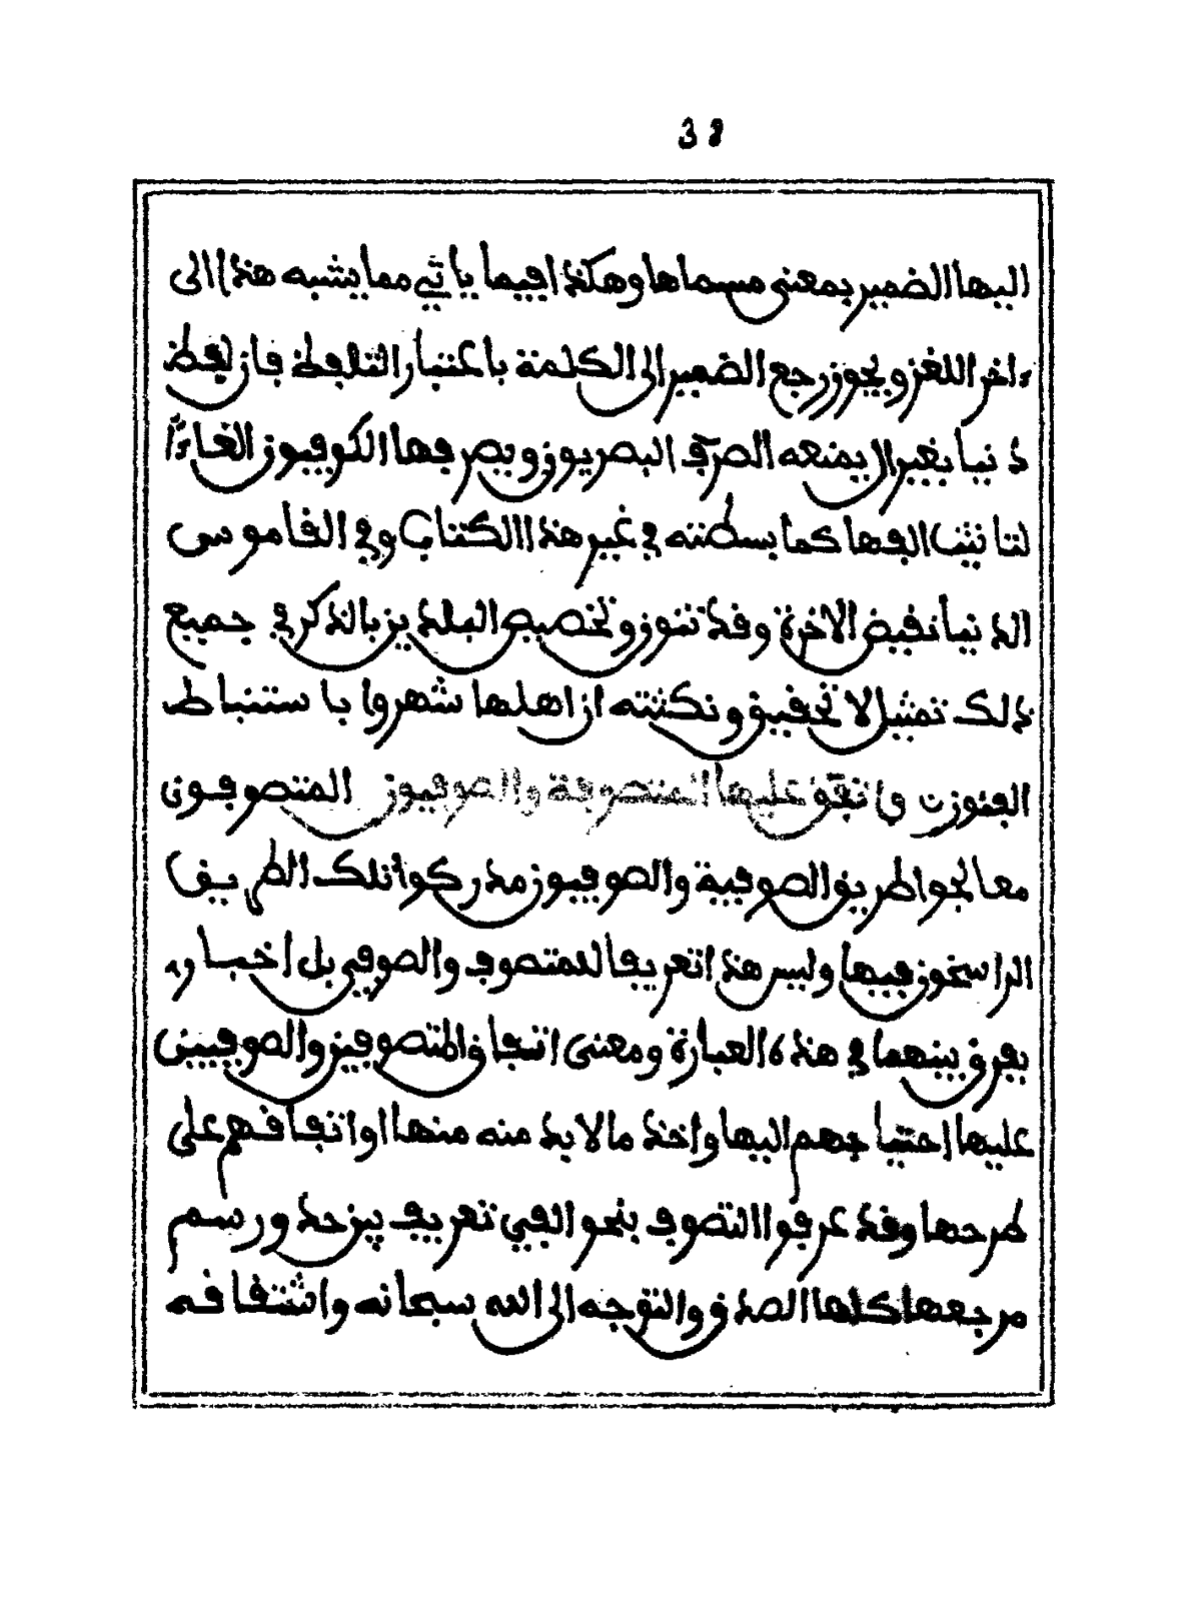 38
اليها الضمير بمعنى مسماها وهكذا فيما ياتي مما يشبه هذا الى
ءاخر اللغز ويجوز رجع الضمير الى الكلمة باعتبار التلفظ فان لفظ
دنيا بغير ال يمنعه الصرف البصريون ويصرفها الكوفيون الغاءً
لتانيث الفها كما بسطته في غير هذا الكتاب وفي القاموس
الدنيا نقيض الاخرة وقد تنون وتخصيص البلدين بالذكر في جميع
ذلك تمثيل لا تحقيق ونكتته ان اهلها شهروا باستنباط
الفنون واتفق عليها المتصوفة والصوفيون المتصوفون
معالجوا طريق الصوفية والصوفيون مدركوا تلك الطريق
الراسخون فيها وليس هذا تعريفا للمتصوف والصوفي بل اخبار
يفرق بينهما في هذه العبارة ومعنى اتفاق المتصوفين والصوفيين
عليها احتياجهم اليها واخذ ما لا بد منه منها او اتفاقهم على
طرحها وقد عرفوا التصوف بنحو الفي تعريف بين حد ورسم
مرجعها كلها الصدق والتوجه الى الله سبحانه واشتقاقه